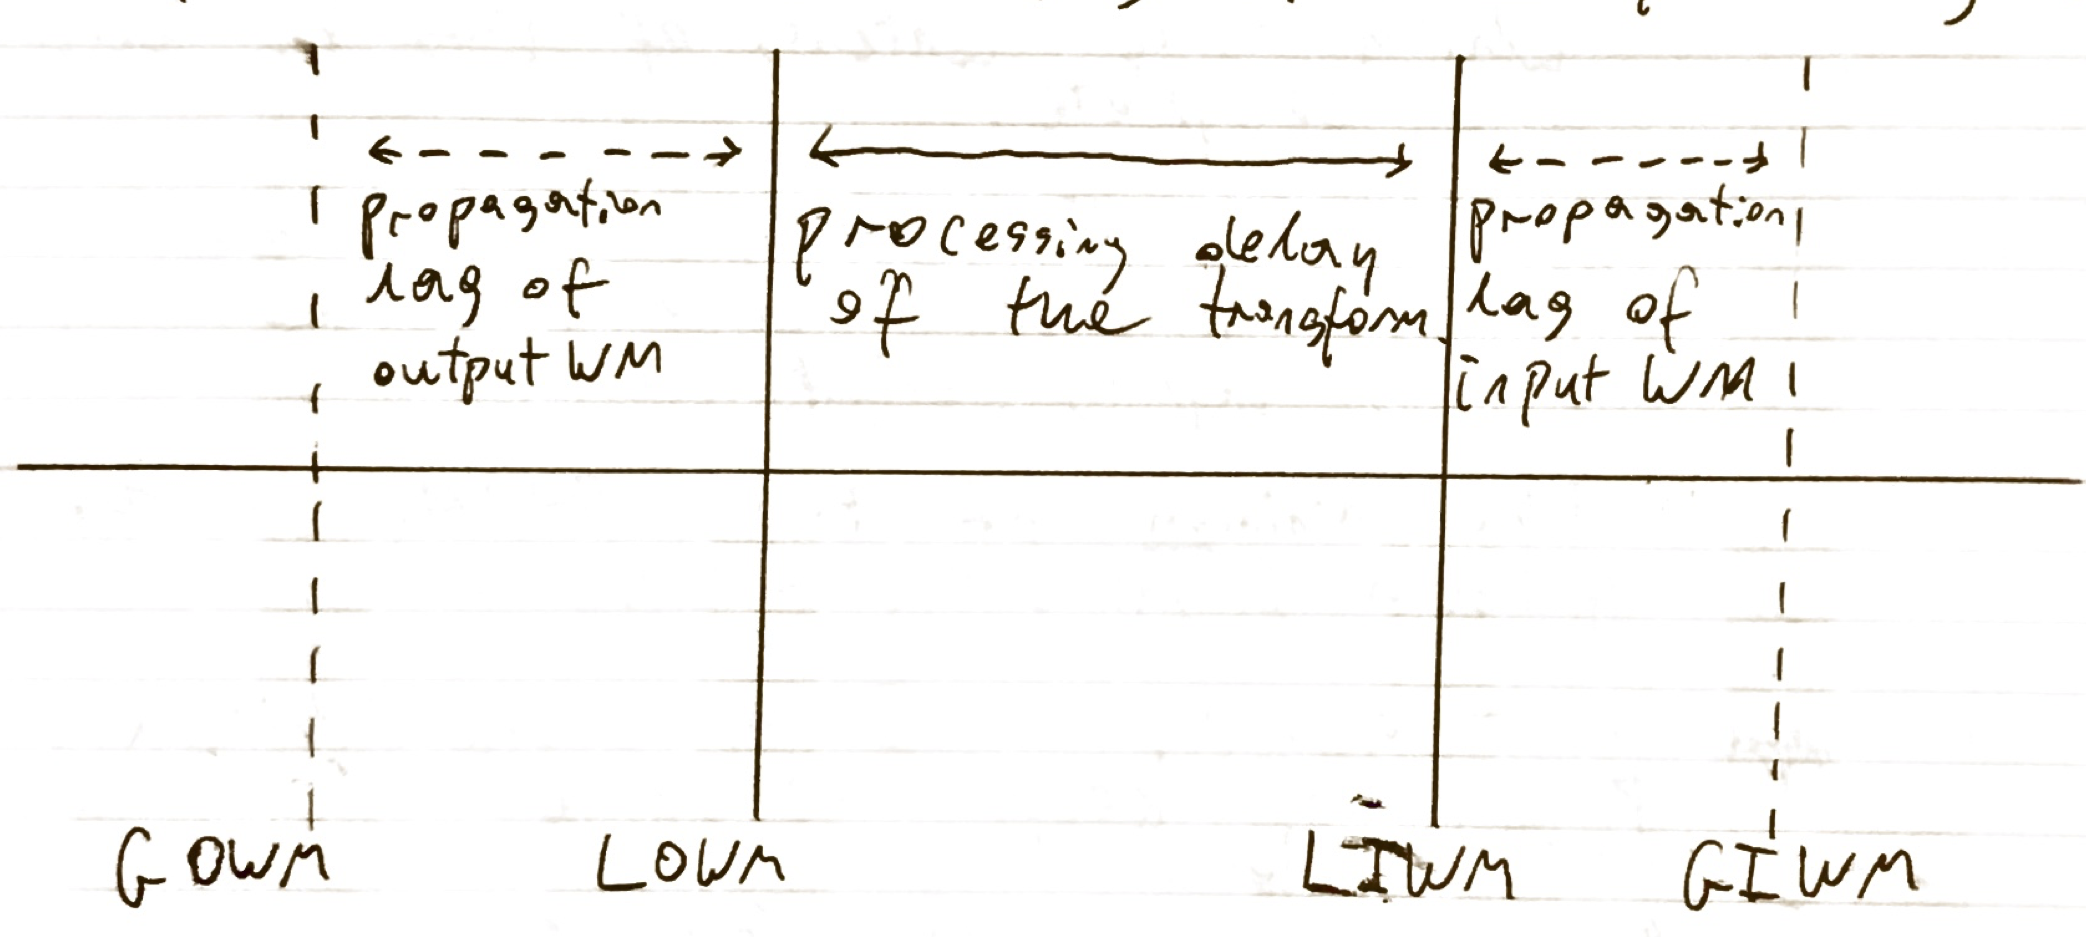 propagation
lag of
output WM
processing delay
of the transform
propagation
lag of
input WM
GOWM
LOWM
LIWM
GIWM